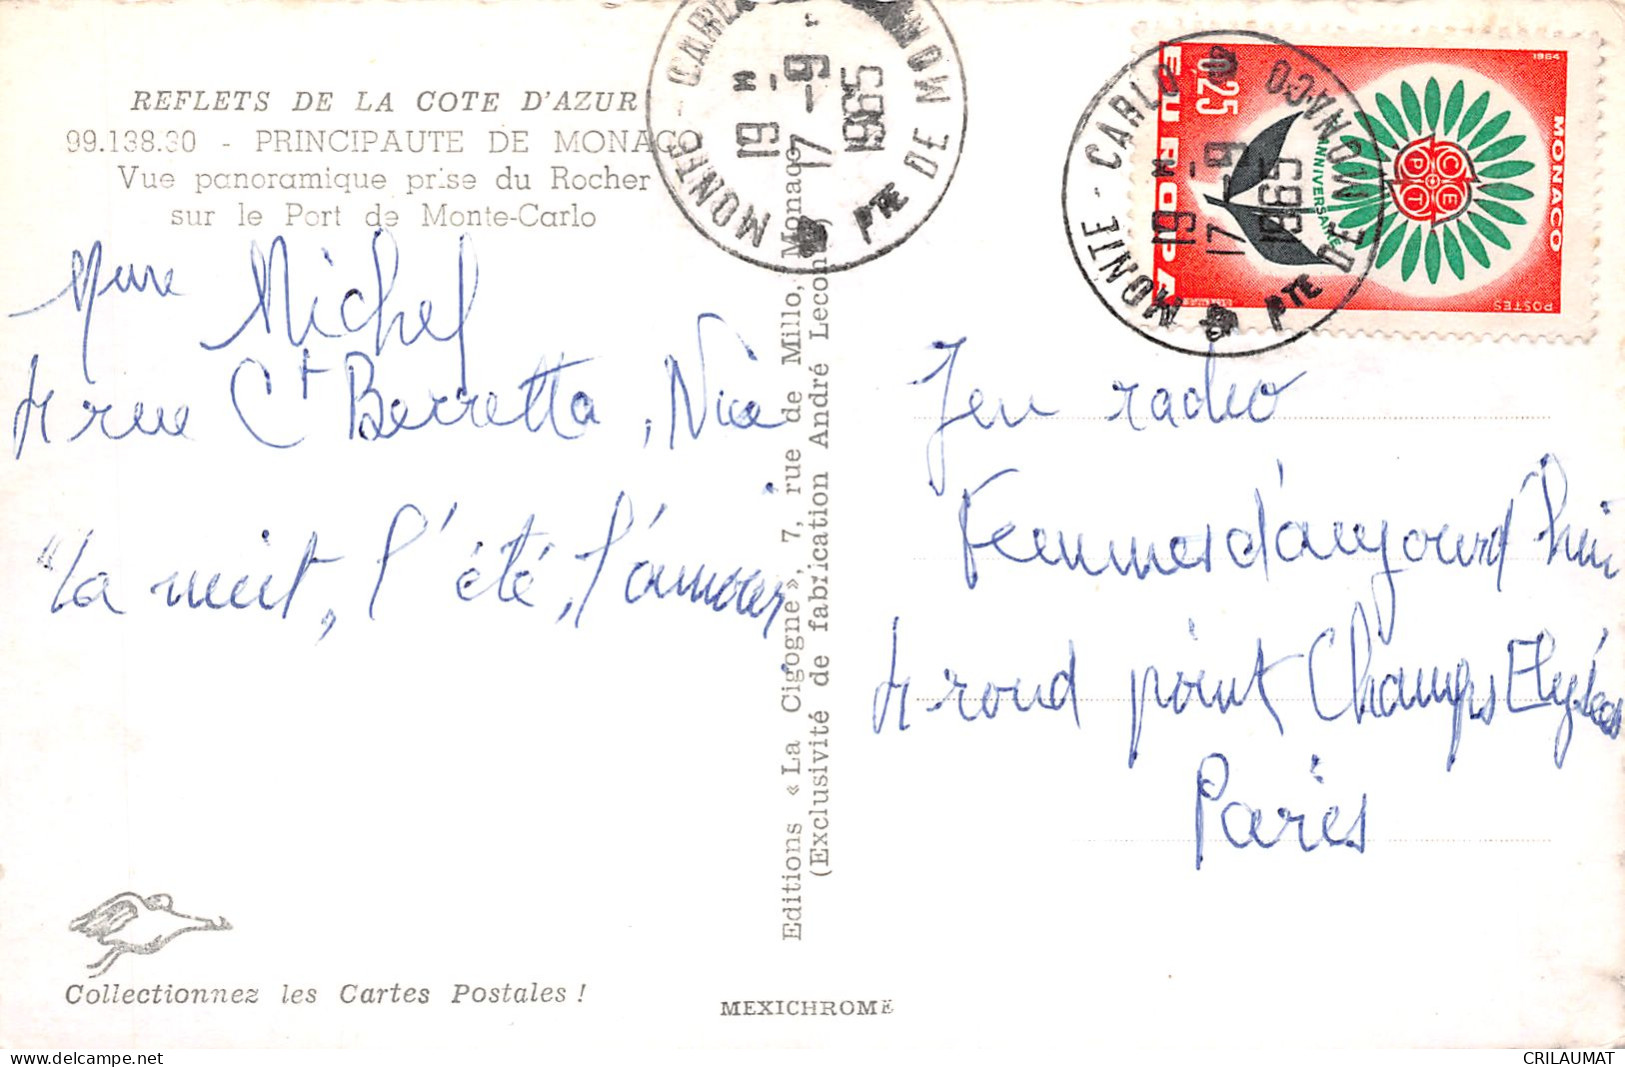 REFLETS DE LA COTE D'AZUR
99.138.30 - PRINCIPAUTE DE MONACO
Vue panoramique prise du Rocher
sur le Port de Monte-Carlo
Mme Michel
4 rue Ct Berretta, Nice
"la nuit, l'été, l'amour
Collectionnez les Cartes Postales !
Editions « La Cigogne », 7, rue de Millo, Monaco
(Exclusivité de fabrication André Lecon
MEXICHROME
MONTE-CARLO
19 H
17 -9
1965
PTE DE MON
MONTE-CARLO
19 H
17 -9
1965
PTE DE MONACO
1964
MONACO
POSTES
EUROPA
0,25
ANNIVERSAIRE
CEPT
Jeu radio
Femmes d'aujourd'hui
4 rond point Champs Elysées
Paris
CRILAUMAT
www.delcampe.net